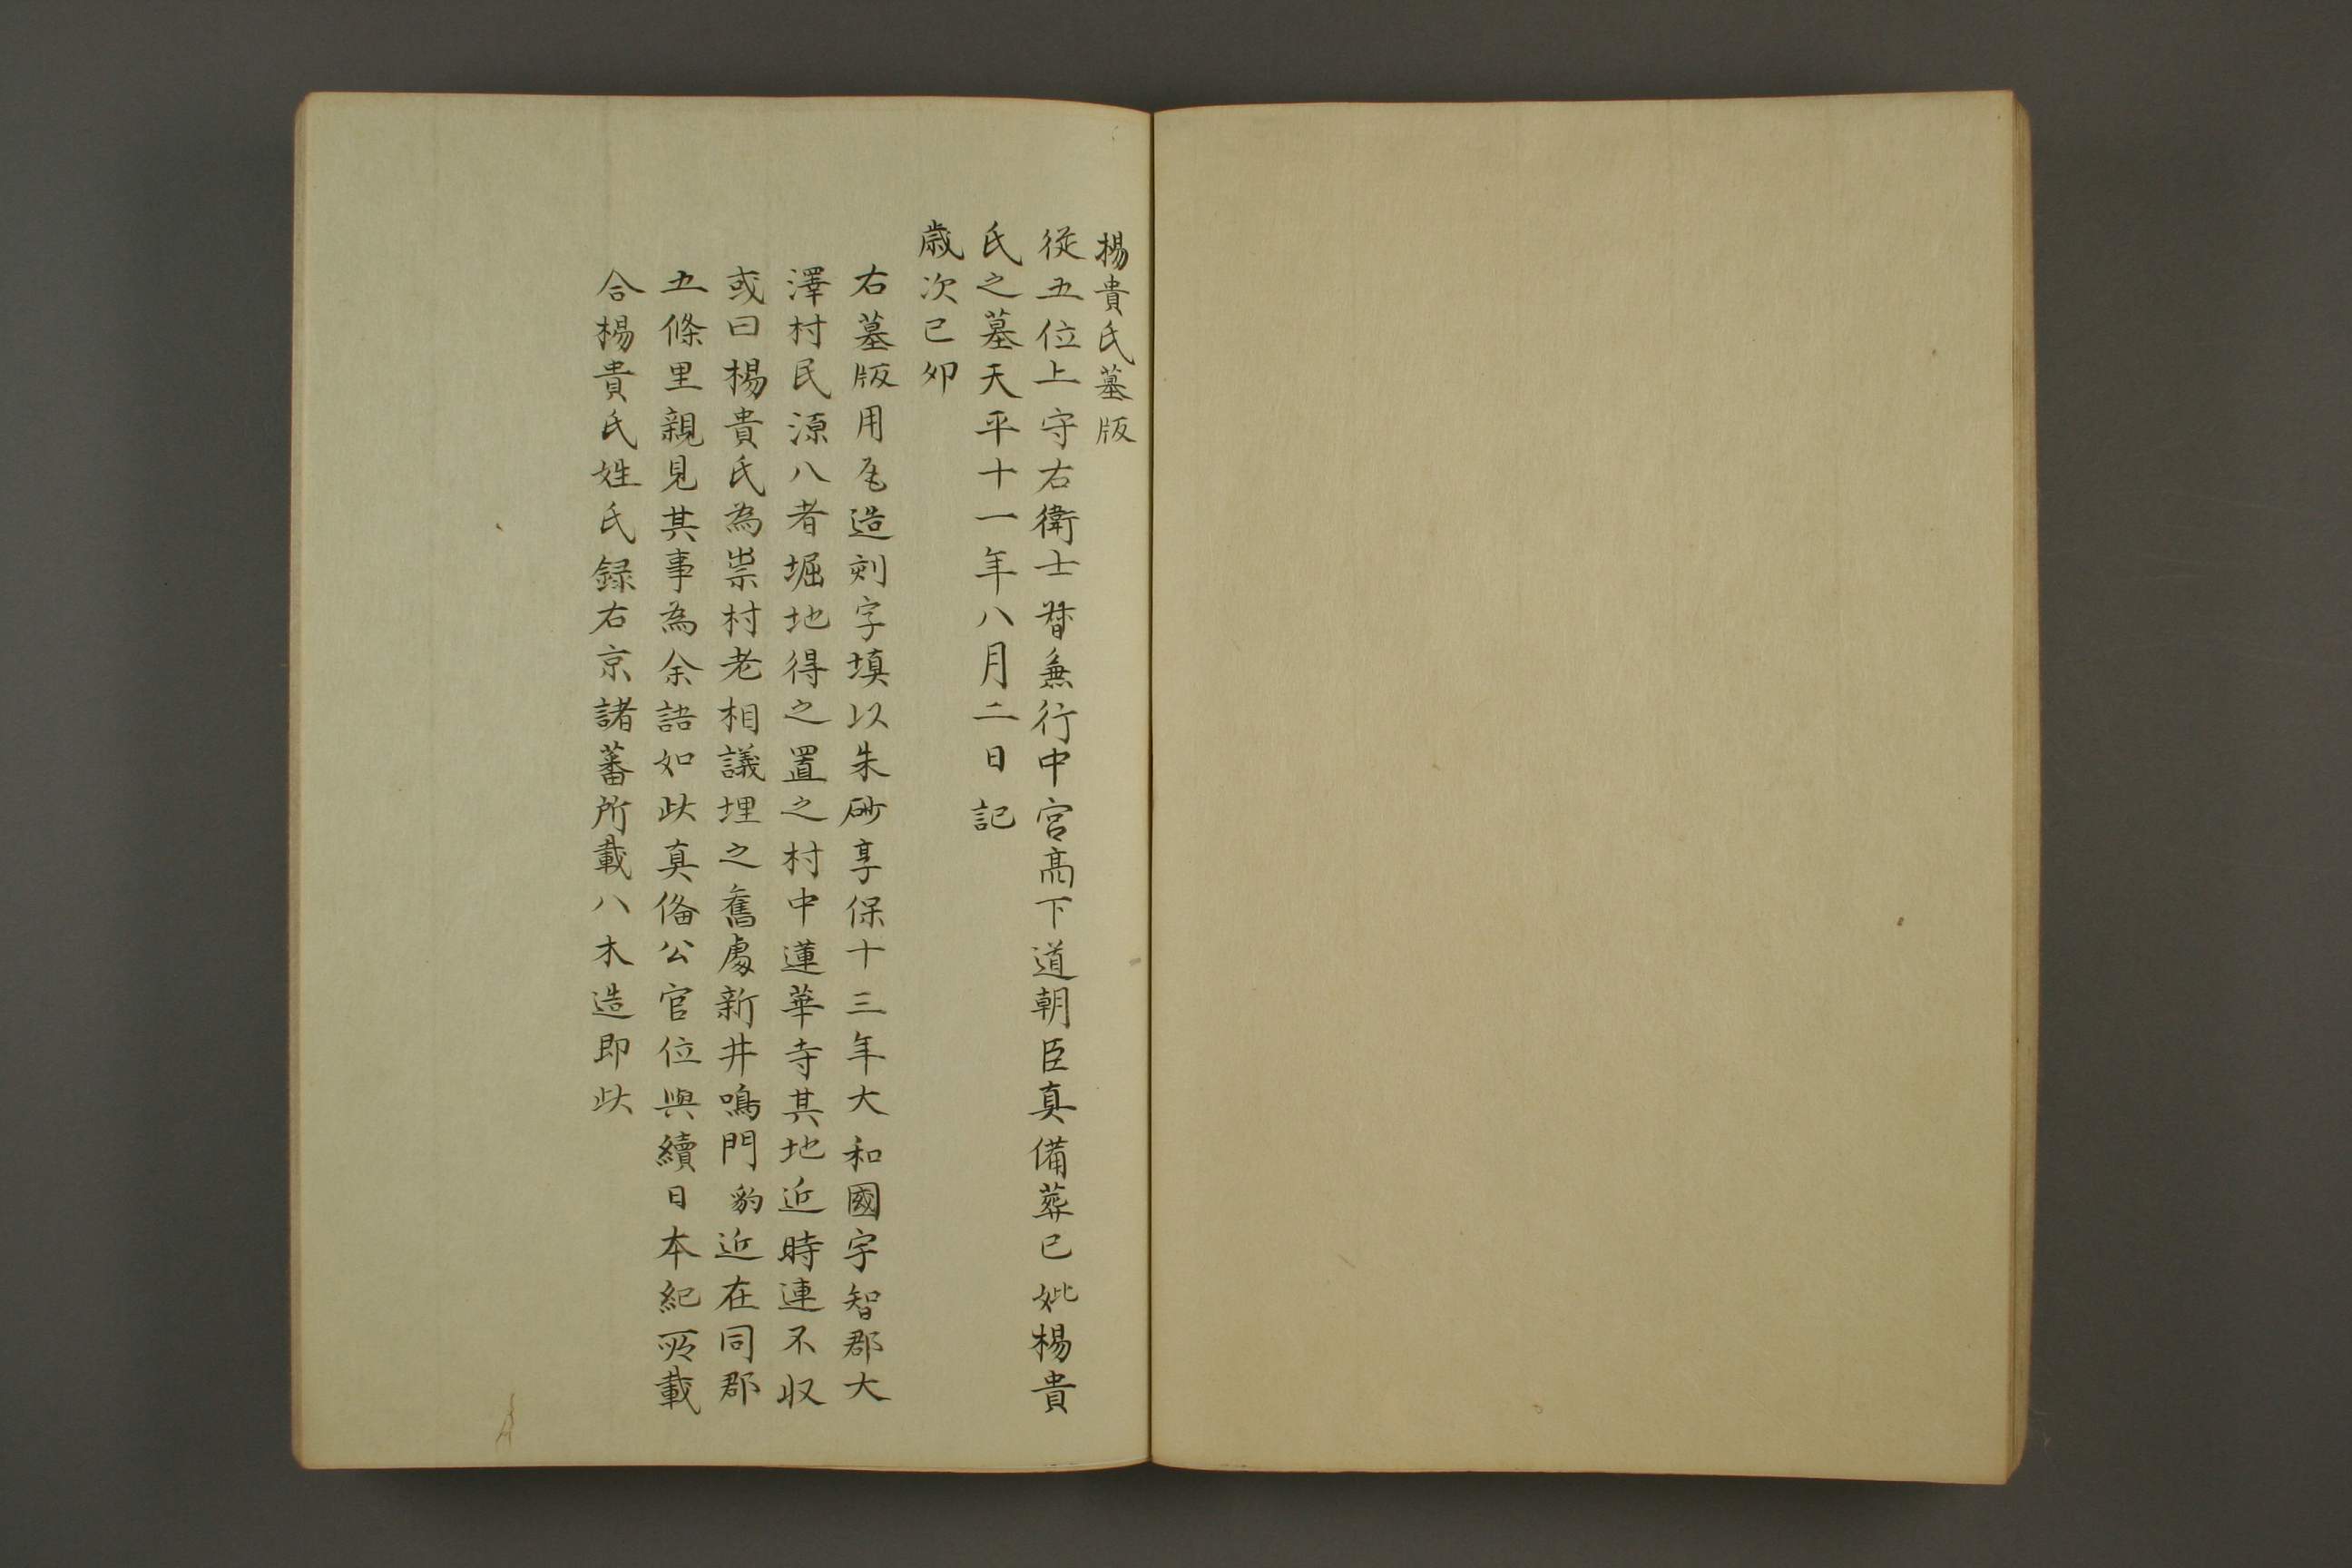 楊貴氏墓版
従五位上守右衛士督兼行中宮高下道朝臣真備葬亡妣楊貴
氏之墓天平十一年八月二日記
歳次己卯
右墓版用瓦造刻字填以朱砂享保十三年大和國宇智郡大
澤村民源八者堀地得之置之村中蓮華寺其地近時連不収
或曰楊貴氏為祟村老相議埋之舊處新井鳴門豹近在同郡
五條里親見其事為余語如此真俻公官位與續日本紀所載
合楊貴氏姓氏録右京諸蕃所載八木造即此